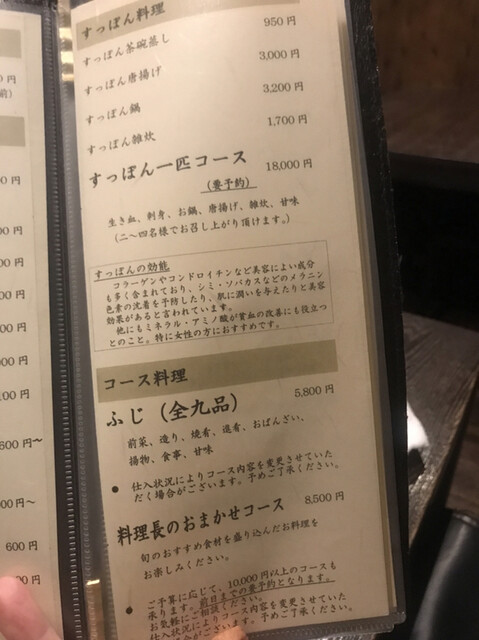 すっぽん料理
すっぽん茶碗蒸し 950円
すっぽん唐揚げ 3,000円
すっぽん鍋 3,200円
すっぽん雑炊 1,700円
すっぽん一匹コース 18,000円
(要予約)
生き血、刺身、お鍋、唐揚げ、雑炊、甘味
(二〜四名様でお召し上がり頂けます。)
すっぽんの効能
コラーゲンやコンドロイチンなど美容によい成分
も多く含まれており、シミ・ソバカスなどのメラニン
色素の沈着を予防したり、肌に潤いを与えたりと美容
効果があると言われています。
他にもミネラル・アミノ酸が貧血の改善にも役立つ
とのこと。特に女性の方におすすめです。
コース料理
ふじ(全九品) 5,800円
前菜、造り、焼肴、進肴、おばんざい、
揚物、食事、甘味
● 仕入状況によりコース内容を変更させていた
だく場合がございます。予めご了承ください。
料理長のおまかせコース 8,500円
旬のおすすめ食材を盛り込んだお料理を
お楽しみください。
● ご予算に応じて、10,000円以上のコースも
承ります。前日までの要予約となります。
お気軽にご相談ください。
仕入状況によりコース内容を変更させていた
だく場合がございます。予めご了承ください。
0円
前)
00円
00円
00円
00円
00円
100円
600円〜
00円〜
600円
00円